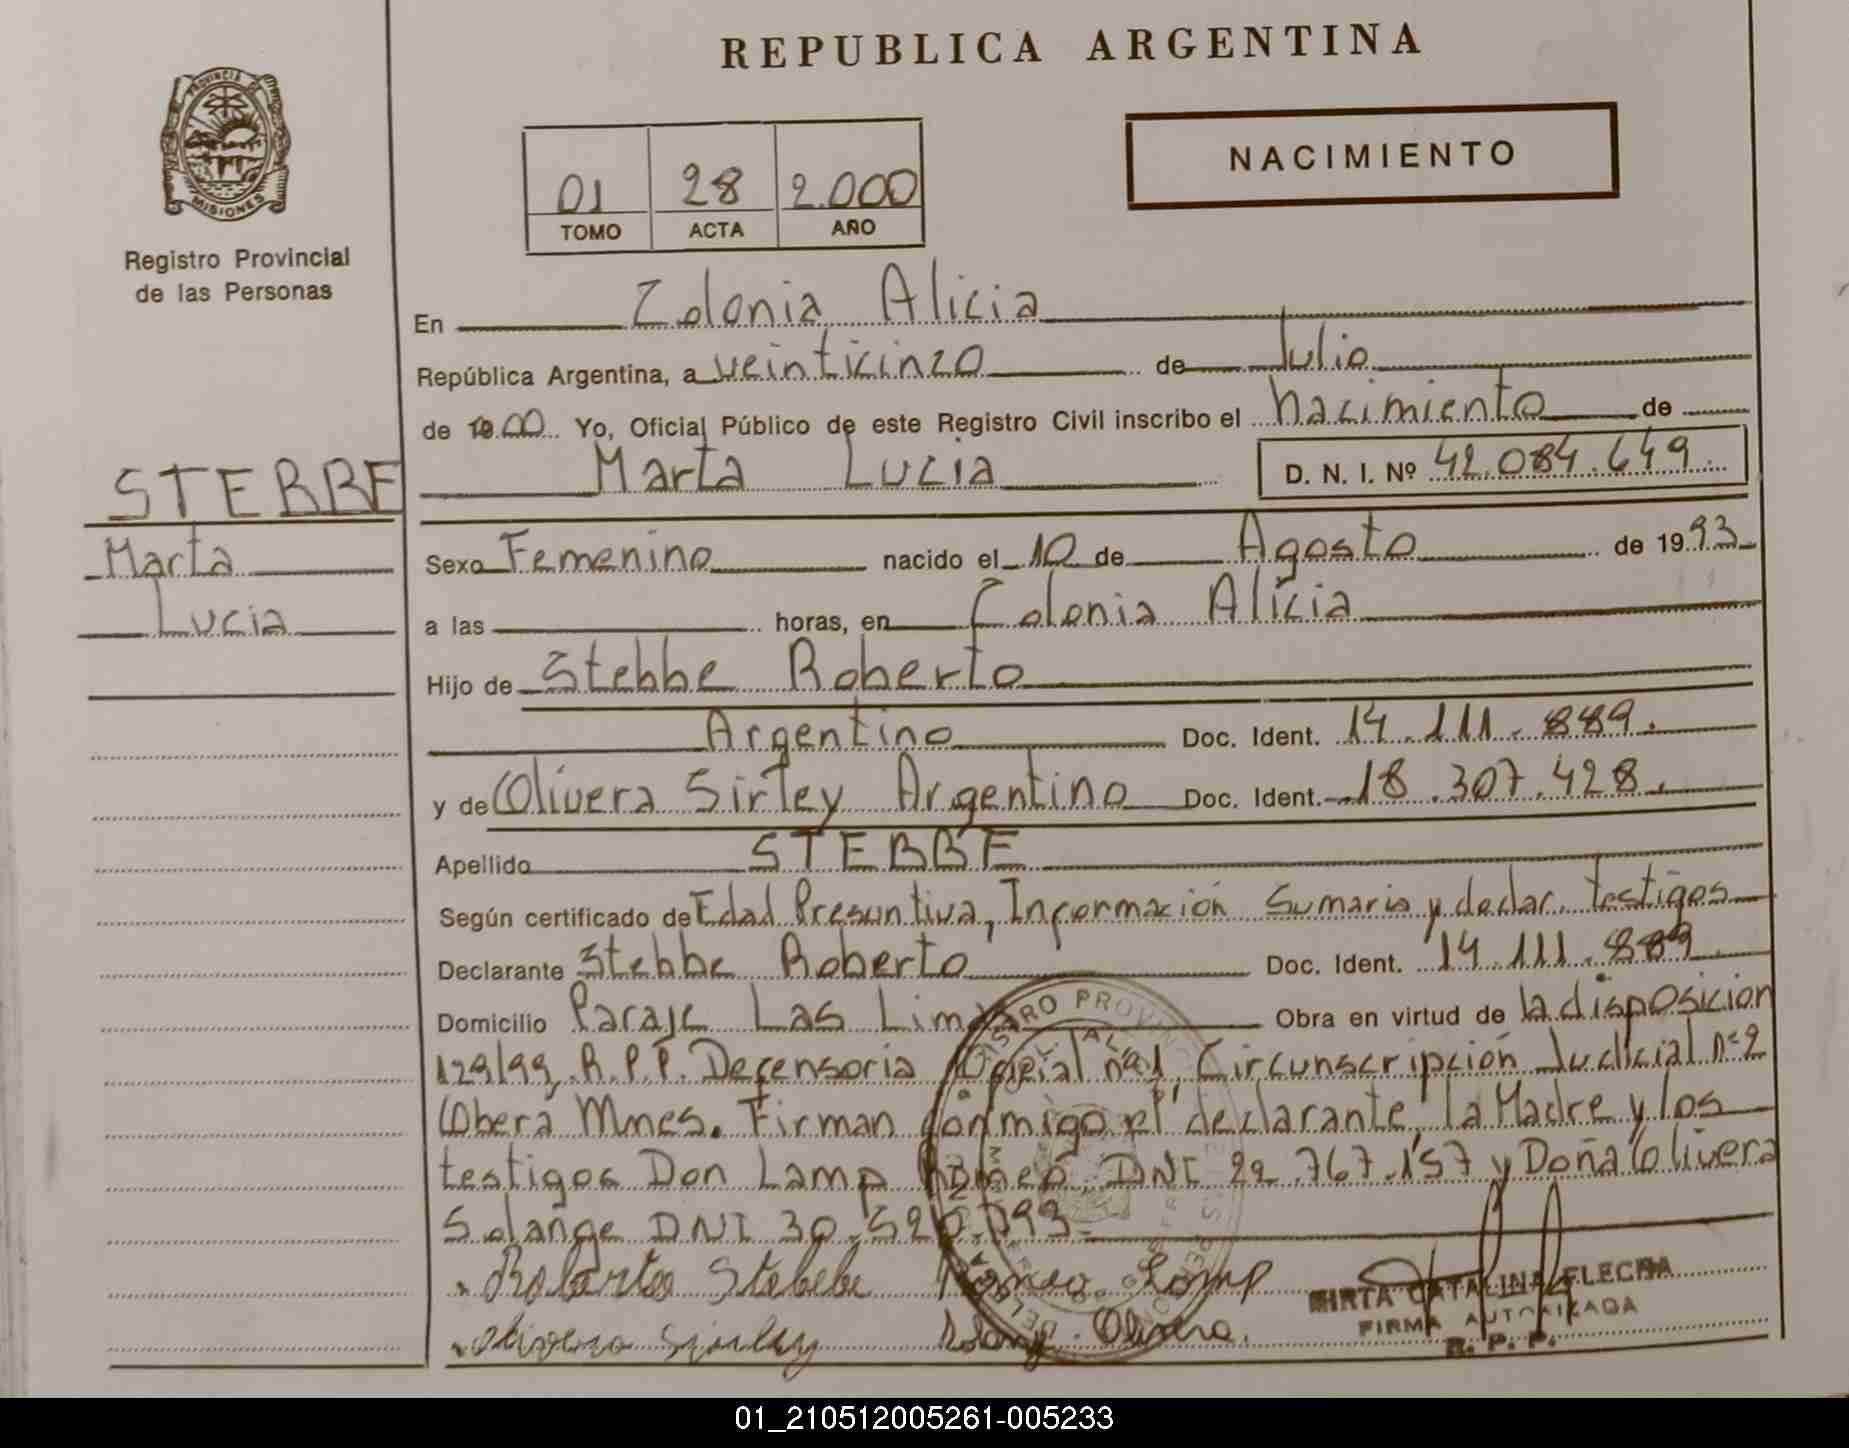 REPUBLICA ARGENTINA
PROVINCIA DE
MISIONES
Registro Provincial
de las Personas
01 28 2.000
TOMO ACTA AÑO
NACIMIENTO
En Colonia Alicia
República Argentina, a veinticinco de Julio
de 00 Yo, Oficial Público de este Registro Civil inscribo el nacimiento de
Marta Lucia D. N. I. Nº 42.084.649.
STEBBE
Marta
Lucia
Sexo Femenino nacido el 10 de Agosto de 1993
a las horas, en Colonia Alicia
Hijo de Stebbe Roberto
Argentino Doc. Ident. 14.111.889.
y de Olivera Sirley Argentino Doc. Ident. 18.307.428.
Apellido STEBBE
Según certificado de Edad Presuntiva, Información Sumaria y declar. testigos
Declarante Stebbe Roberto Doc. Ident. 14.111.889.
Domicilio Paraje Las Limas Obra en virtud de la disposición
129/99, R.P.P. Defensoria Oficial nº1, Circunscripción Judicial nº2
Oberá Mnes. Firman conmigo el declarante, la Madre y los
testigos Don Lamp DNI 22.767.157 y Doña Olivera
Solange DNI 30.520.093
Roberto Stebbe Lamp
Olivera Sirley Olivera.
MIRTA CATALINA FLECHA
FIRMA AUTORIZADA
R. P. P.
01_210512005261-005233